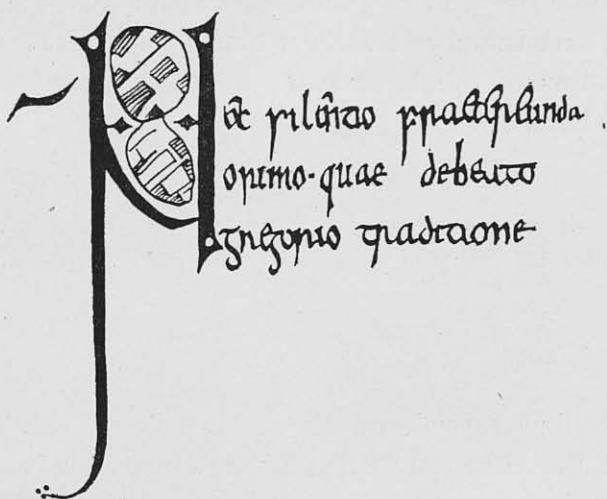 Nec silentio praetereunda
opinio· quae debeato
gregorio traditione